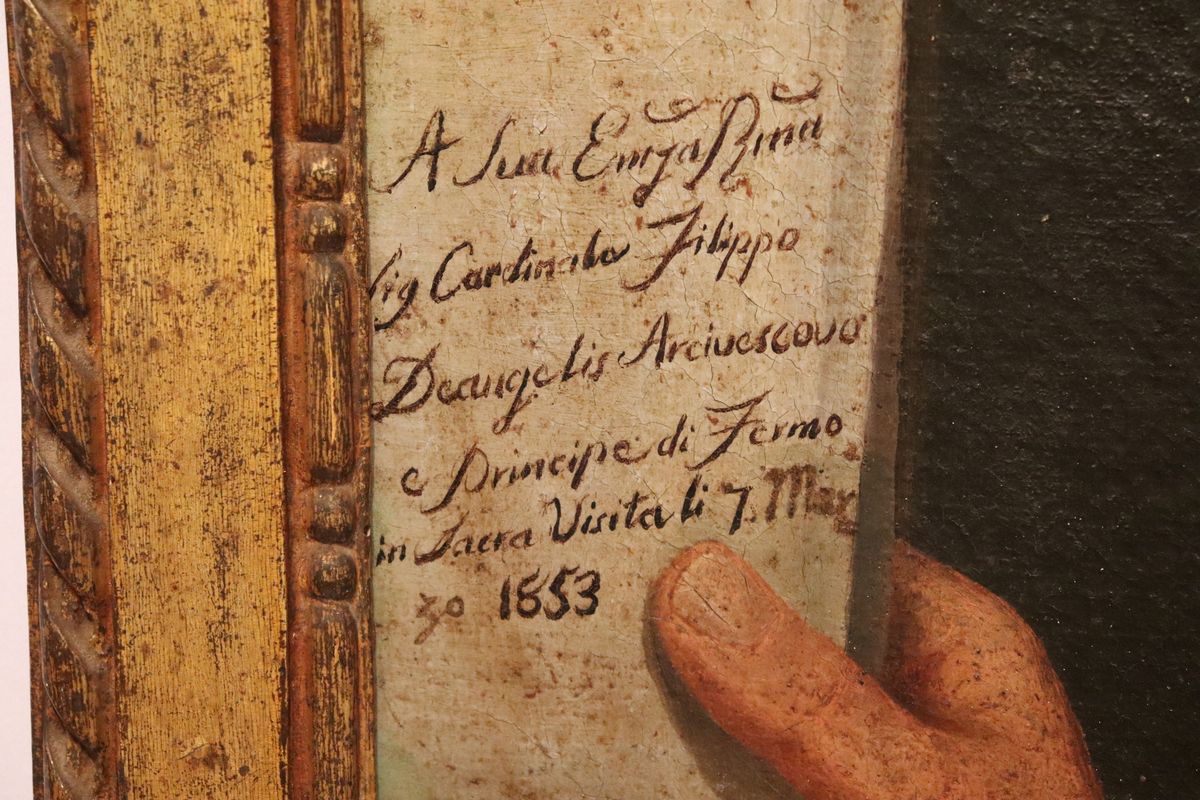 A Sua Emza Rma
Sig Cardinale Filippo
Deangelis Arcivescovo
e Principe di Fermo
in Sacra Visita li 7. Mar
zo 1853